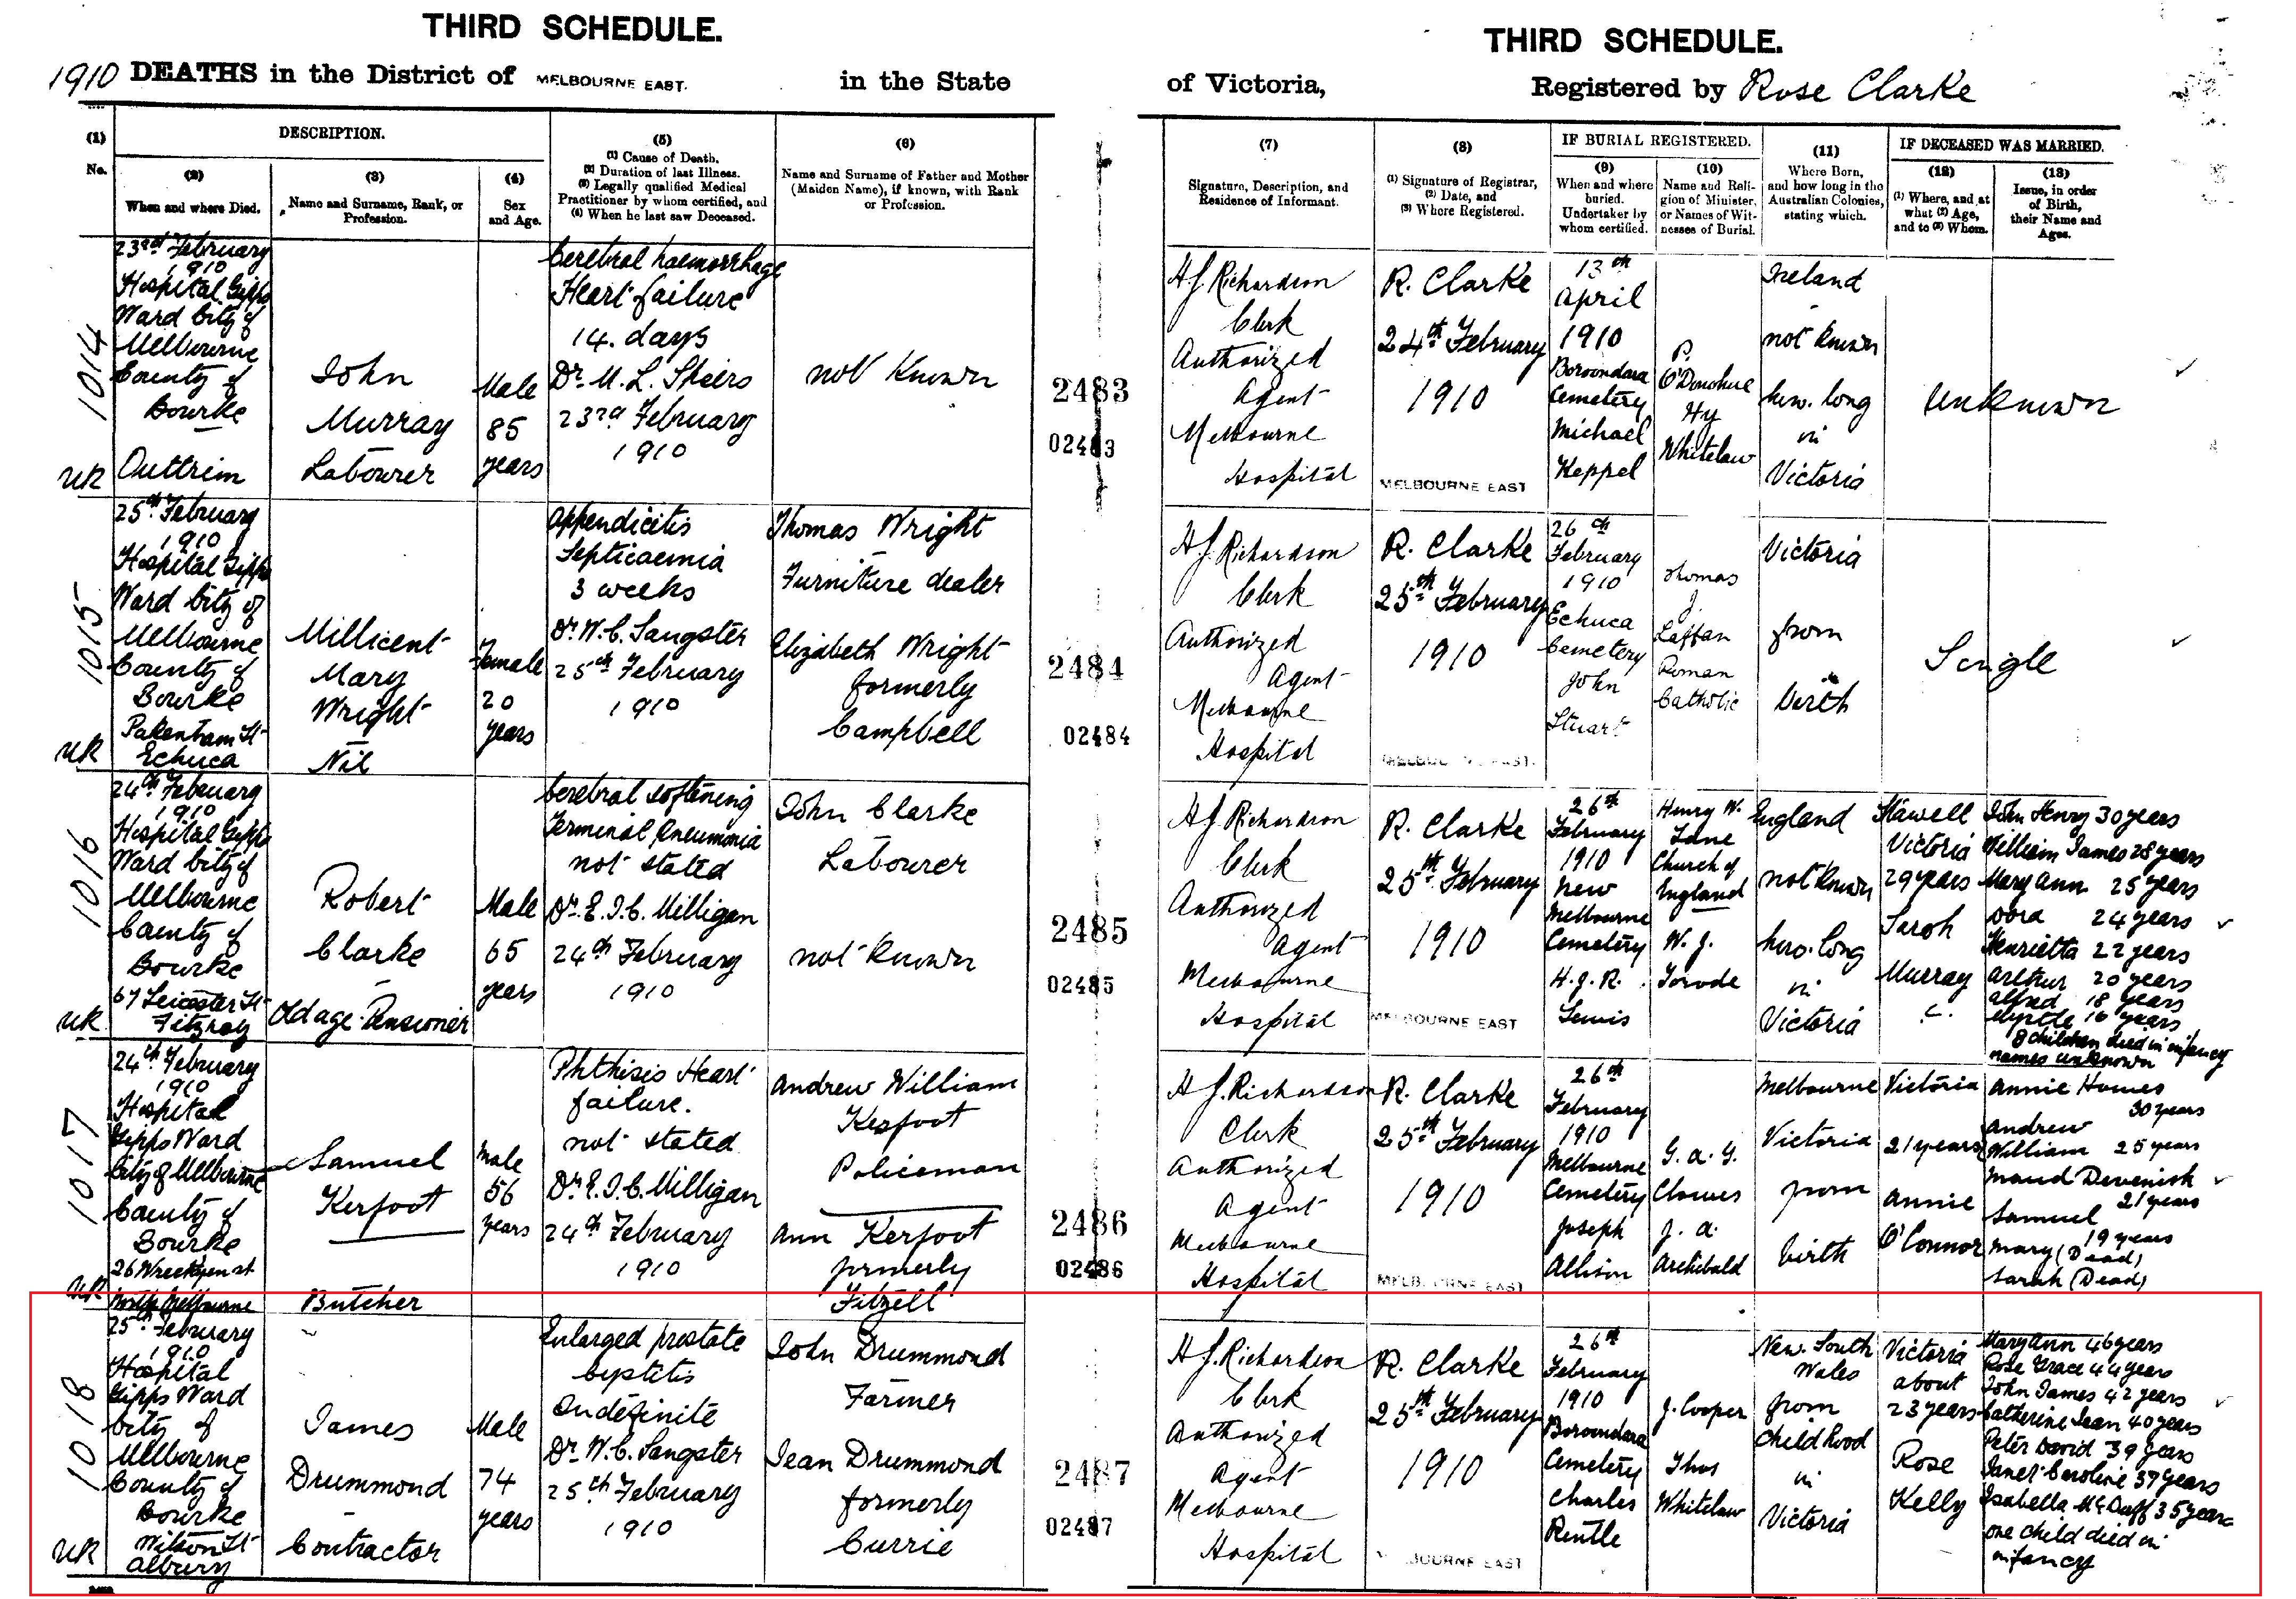 THIRD SCHEDULE.
1910 DEATHS in the District of MELBOURNE EAST. in the State
THIRD SCHEDULE.
of Victoria, Registered by Rose Clarke
(1)
No.
DESCRIPTION.
(2)
When and where Died.
(3)
Name and Surname, Rank, or
Profession.
(4)
Sex
and Age.
(5)
(1) Cause of Death.
(2) Duration of last Illness.
(3) Legally qualified Medical
Practitioner by whom certified, and
(4) When he last saw Deceased.
(6)
Name and Surname of Father and Mother
(Maiden Name), if known, with Rank
or Profession.
(7)
Signature, Description, and
Residence of Informant.
(8)
(1) Signature of Registrar,
(2) Date, and
(3) Where Registered.
IF BURIAL REGISTERED.
(9)
When and where
buried.
Undertaker by
whom certified.
(10)
Name and Reli-
gion of Minister,
or Names of Wit-
nesses of Burial.
(11)
Where Born,
and how long in the
Australian Colonies,
stating which.
IF DECEASED WAS MARRIED.
(12)
(1) Where, and at
what (2) Age,
and to (3) Whom.
(13)
Issue, in order
of Birth,
their Name and
Ages.
1014
UR
23rd February
1910
Hospital Gipps
Ward City of
Melbourne
County of
Bourke
Outtrim
John
Murray
Labourer
Male
85
years
Cerebral haemorrhage
Heart failure
14. days
Dr. M. L. Shiers
23rd February
1910
not known
2483
02483
H. J. Richardson
Clerk
Authorized
Agent
Melbourne
Hospital
R. Clarke
24th February
1910
MELBOURNE EAST
13th
April
1910
Boroondara
Cemetery
Michael
Keppel
P.
O'Donohue
Hy
Whitelaw
Ireland
not known
how long
in
Victoria
Unknown
1015
UR
25th February
1910
Hospital Gipps
Ward City of
Melbourne
County of
Bourke
Pakenham St
Echuca
Millicent
Mary
Wright
Nil
Female
20
years
Appendicitis
Septicaemia
3 weeks
Dr. W. C. Sangster
25th February
1910
Thomas Wright
Furniture dealer
Elizabeth Wright
formerly
Campbell
2484
02484
H. J. Richardson
Clerk
Authorized
Agent
Melbourne
Hospital
R. Clarke
25th February
1910
26th
February
1910
Echuca
Cemetery
John
Stuart
Thomas
J.
Laffan
Roman
Catholic
Victoria
from
birth
Single
1016
UR
24th February
1910
Hospital Gipps
Ward City of
Melbourne
County of
Bourke
67 Leicester St
Fitzroy
Robert
Clarke
Old age Pensioner
Male
65
years
Cerebral softening
Terminal Pneumonia
not stated
Dr. E. I. C. Milligan
24th February
1910
John Clarke
Labourer
not known
2485
02485
H. J. Richardson
Clerk
Authorized
Agent
Melbourne
Hospital
R. Clarke
25th February
1910
MELBOURNE EAST
26th
February
1910
New
Melbourne
Cemetery
H. J. R.
Lewis
Henry W.
Lane
Church of
England
W. J.
Torode
England
not known
how long
in
Victoria
Stawell
Victoria
29 years
Sarah
Murray
John Henry 30 years
William James 28 years
Mary Ann 25 years
Dora 24 years
Henrietta 22 years
Arthur 20 years
Alfred 18 years
Myrtle 16 years
8 children died in infancy
names unknown
1017
UR
24th February
1910
Hospital
Gipps Ward
City of Melbourne
County of
Bourke
26 Wreckyn st
North Melbourne
Samuel
Kerfoot
Butcher
Male
56
years
Phthisis Heart
failure.
not stated
Dr. E. I. C. Milligan
24th February
1910
Andrew William
Kerfoot
Policeman
Ann Kerfoot
formerly
Fitzell
2486
02486
H. J. Richardson
Clerk
Authorized
Agent
Melbourne
Hospital
R. Clarke
25th February
1910
26th
February
1910
Melbourne
Cemetery
Joseph
Allison
G. A. Y.
Clowes
J. A.
Archibald
Melbourne
Victoria
from
birth
Victoria
21 years
Annie
O'Connor
Annie Homes
30 years
Andrew
William 25 years
Maud Devenish
21 years
Samuel
19 years
Mary (Dead)
Sarah (Dead)
1018
UR
25th February
1910
Hospital
Gipps Ward
City of
Melbourne
County of
Bourke
Wilson St
Albury
James
Drummond
Contractor
Male
74
years
Enlarged prostate
Cystitis
Indefinite
Dr. W. C. Sangster
25th February
1910
John Drummond
Farmer
Jean Drummond
formerly
Currie
2487
02487
H. J. Richardson
Clerk
Authorized
Agent
Melbourne
Hospital
R. Clarke
25th February
1910
26th
February
1910
Boroondara
Cemetery
Charles
Rintle
J. Cooper
Thos
Whitelaw
New South
Wales
from
Childhood
in
Victoria
Victoria
about
23 years
Rose
Kelly
Mary Ann 46 years
Rose Grace 44 years
John James 42 years
Catherine Jean 40 years
Peter David 39 years
Janet Caroline 37 years
Isabella McDuff 35 years
one child died in
infancy